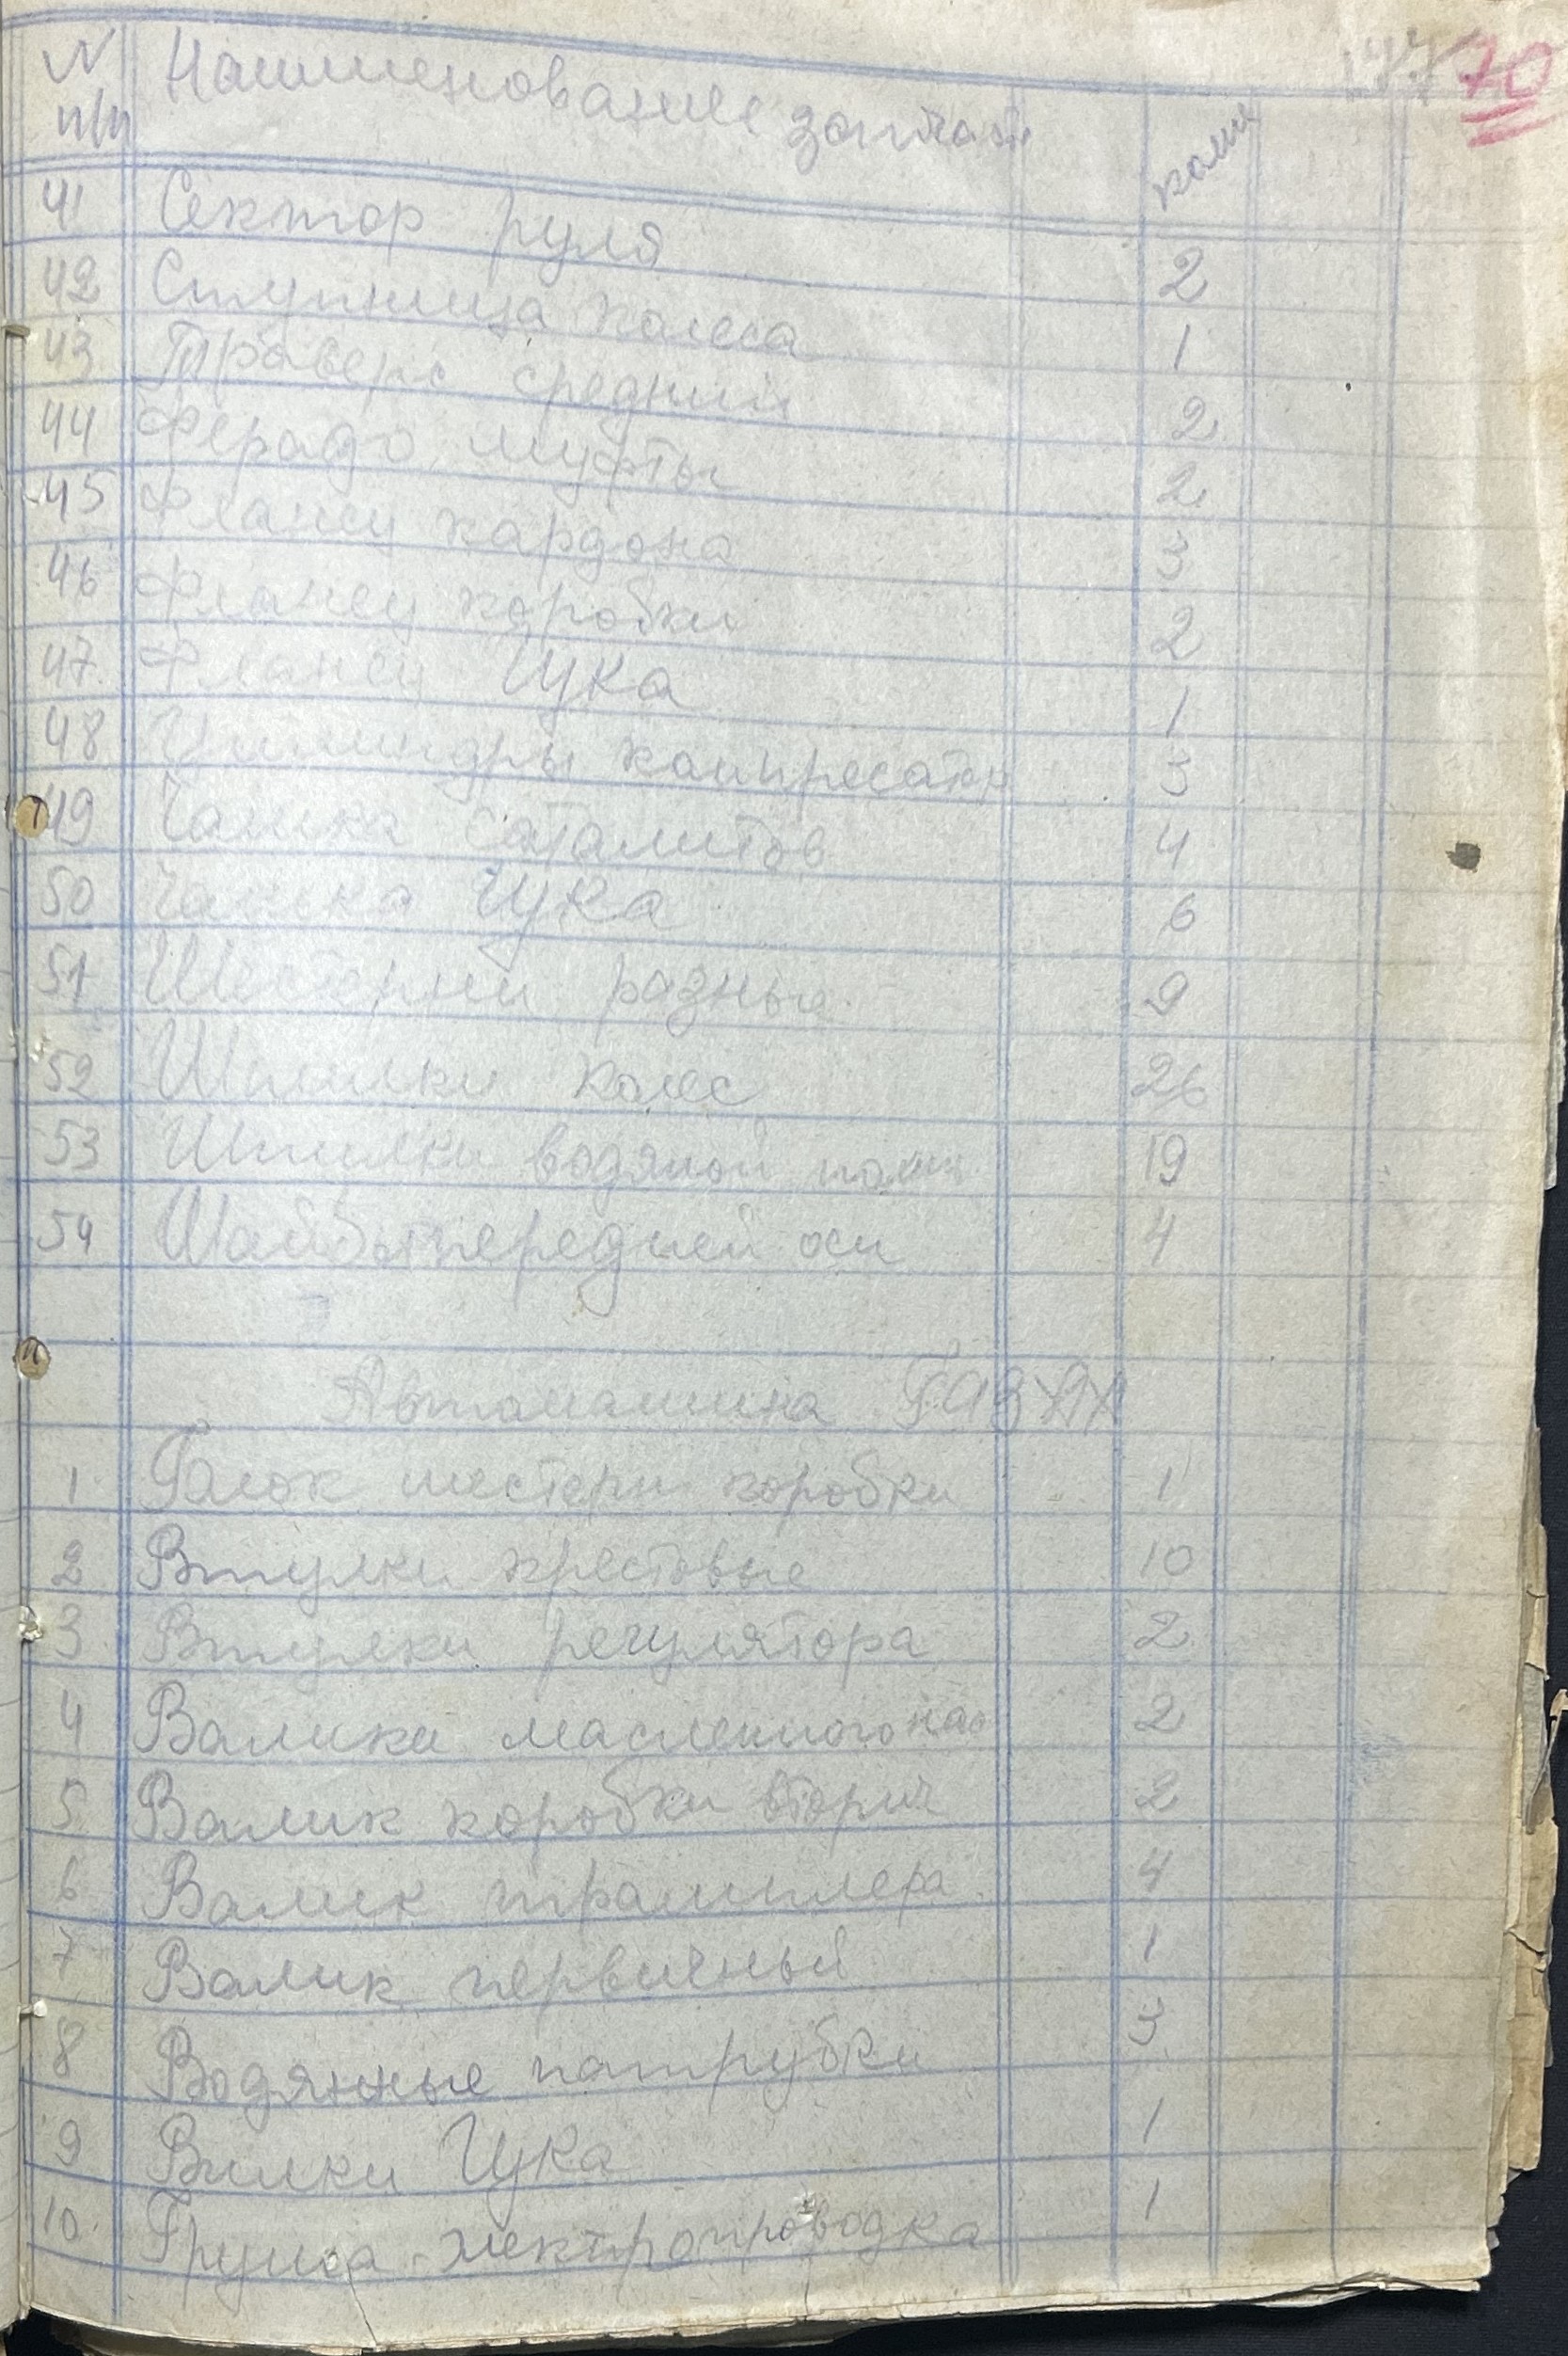 70
N Наименование запчасти колич
п/п
41 Сектор руля 2
42 Ступница колеса 1
43 Траверс средний 2
44 Ферадо муфты 2
45 Фланец кардона 3
46 Фланец коробки 2
47 Фланец Гука 1
48 Цилиндры компресатор 3
49 Чашка саталитов 4
50 Чашка Гука 6
51 Шестерни разные 9
52 Шпильки колес 26
53 Шпильки водяной помп 19
54 Шайбы передней оси 4
Автомашина ГАЗ АА
1 Блок шестерн коробки 1
2 Втулки крестовые 10
3 Втулки регулятора 2
4 Валики масленного нас 2
5 Валик коробки вторич 2
6 Валик трамплера 4
7 Валик первичный 1
8 Водянные патрубки 3
9 Вилки Гука 1
10 Группа электропроводка 1